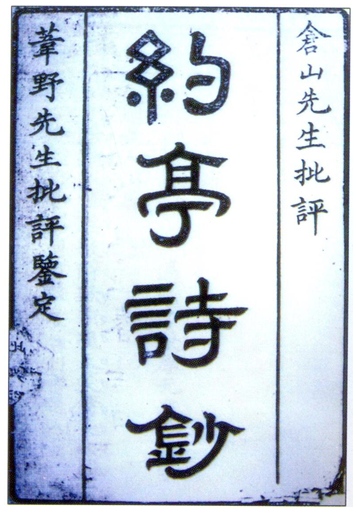 倉山先生批評
約亭詩鈔
葦野先生批評鑒定